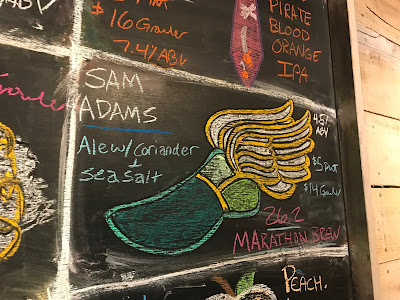 $16 Growler
7.4% ABV
PIRATE
BLOOD
ORANGE
IPA
SAM
ADAMS
Ale w/ Coriander
+
Sea Salt
4.5%
ABV
$5 Pint
$14 Growler
26.2
MARATHON BREW
PEACH.